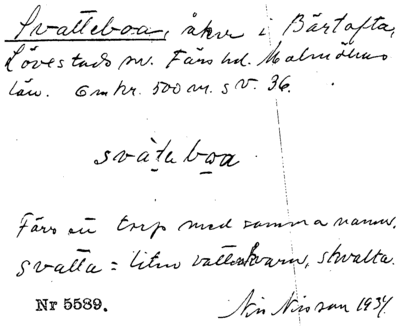 Svatteboa, åker i Bärtofta,
Lövestads sn. Färs hd. Malmöhus
län. Omkr. 500 m. s v. 36.
svàtaboa
Färs en torp med samma namn.
svatta = liten vattenkvarn, skvalta.
Nr 5589. Nils Nilsson 1934.